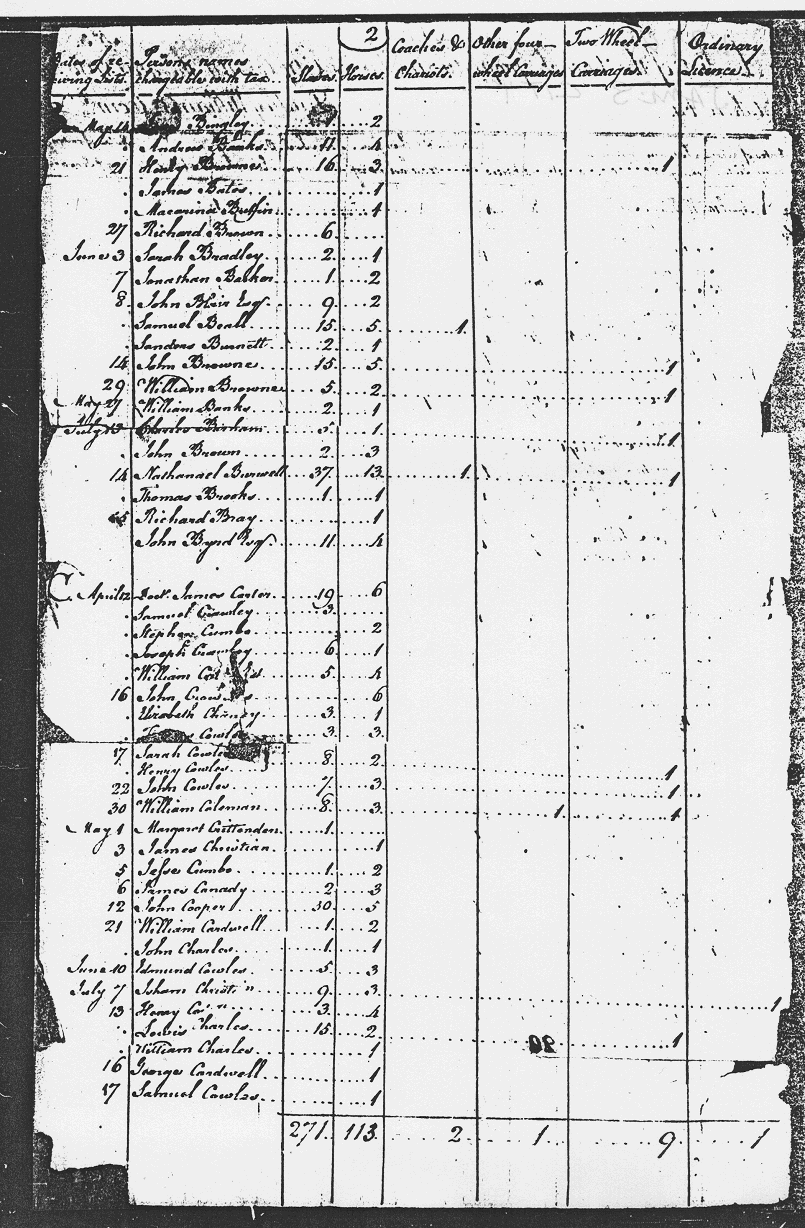 2
Dates of re- Persons names Coaches & Other four- Two Wheel- Ordinary
ceiving Lists. chargeable with tax. Slaves. Horses. Chariots. wheel Carriages Carriages. Licence.
May 14 Bingley 2
. Andrew Banks 11 4
21 Henry Browne 16 3 1
. James Bates 1
. Macarina Buffin 1
27 Richard Brown 6
June 3 Sarah Bradley 2 1
7 Jonathan Barker 1 2
8 John Blair Esqr. 9 2
. Samuel Beall 15 5 1
. Sanders Burnett 2 1
14 John Browne 15 5 1
29 William Browne 5 2 1
May 27 William Banks 2 1
July 13 Charles Barham 5 1 1
. John Brown 2 3
14 Nathanael Burwell 37 13 1 1
. Thomas Brooks 1 1
Richard Bray 1
John Byrd Esqr. 11 4
C. April 12 Doctr. James Carter 19 6
. Samuel Crawley 3
. Stephen Cumbo 2
. Joseph Crawley 6 1
. William 5 4
16 John 6
. Elizabeth Chaney 3 1
. Cowles 3 3
17 Sarah Cowles 8 2
. Henry Cowles 1
22 John Cowles 7 3 1
30 William Coleman 8 3 1 1
May 1 Margaret Crittenden 1
3 James Christian 1
5 Jesse Cumbo 1 2
6 James Canady 2 3
12 John Cooper 30 5
21 William Cardwell 1 2
. John Charles 1 1
June 10 Edmund Cowles 5 3
July 7 Isham 9 3 1
13 Henry 3 4
. Lewis Charles 15 2 1
. William Charles 1
16 George Cardwell 1
17 Samuel Cowles 1
271 113 2 1 9 1